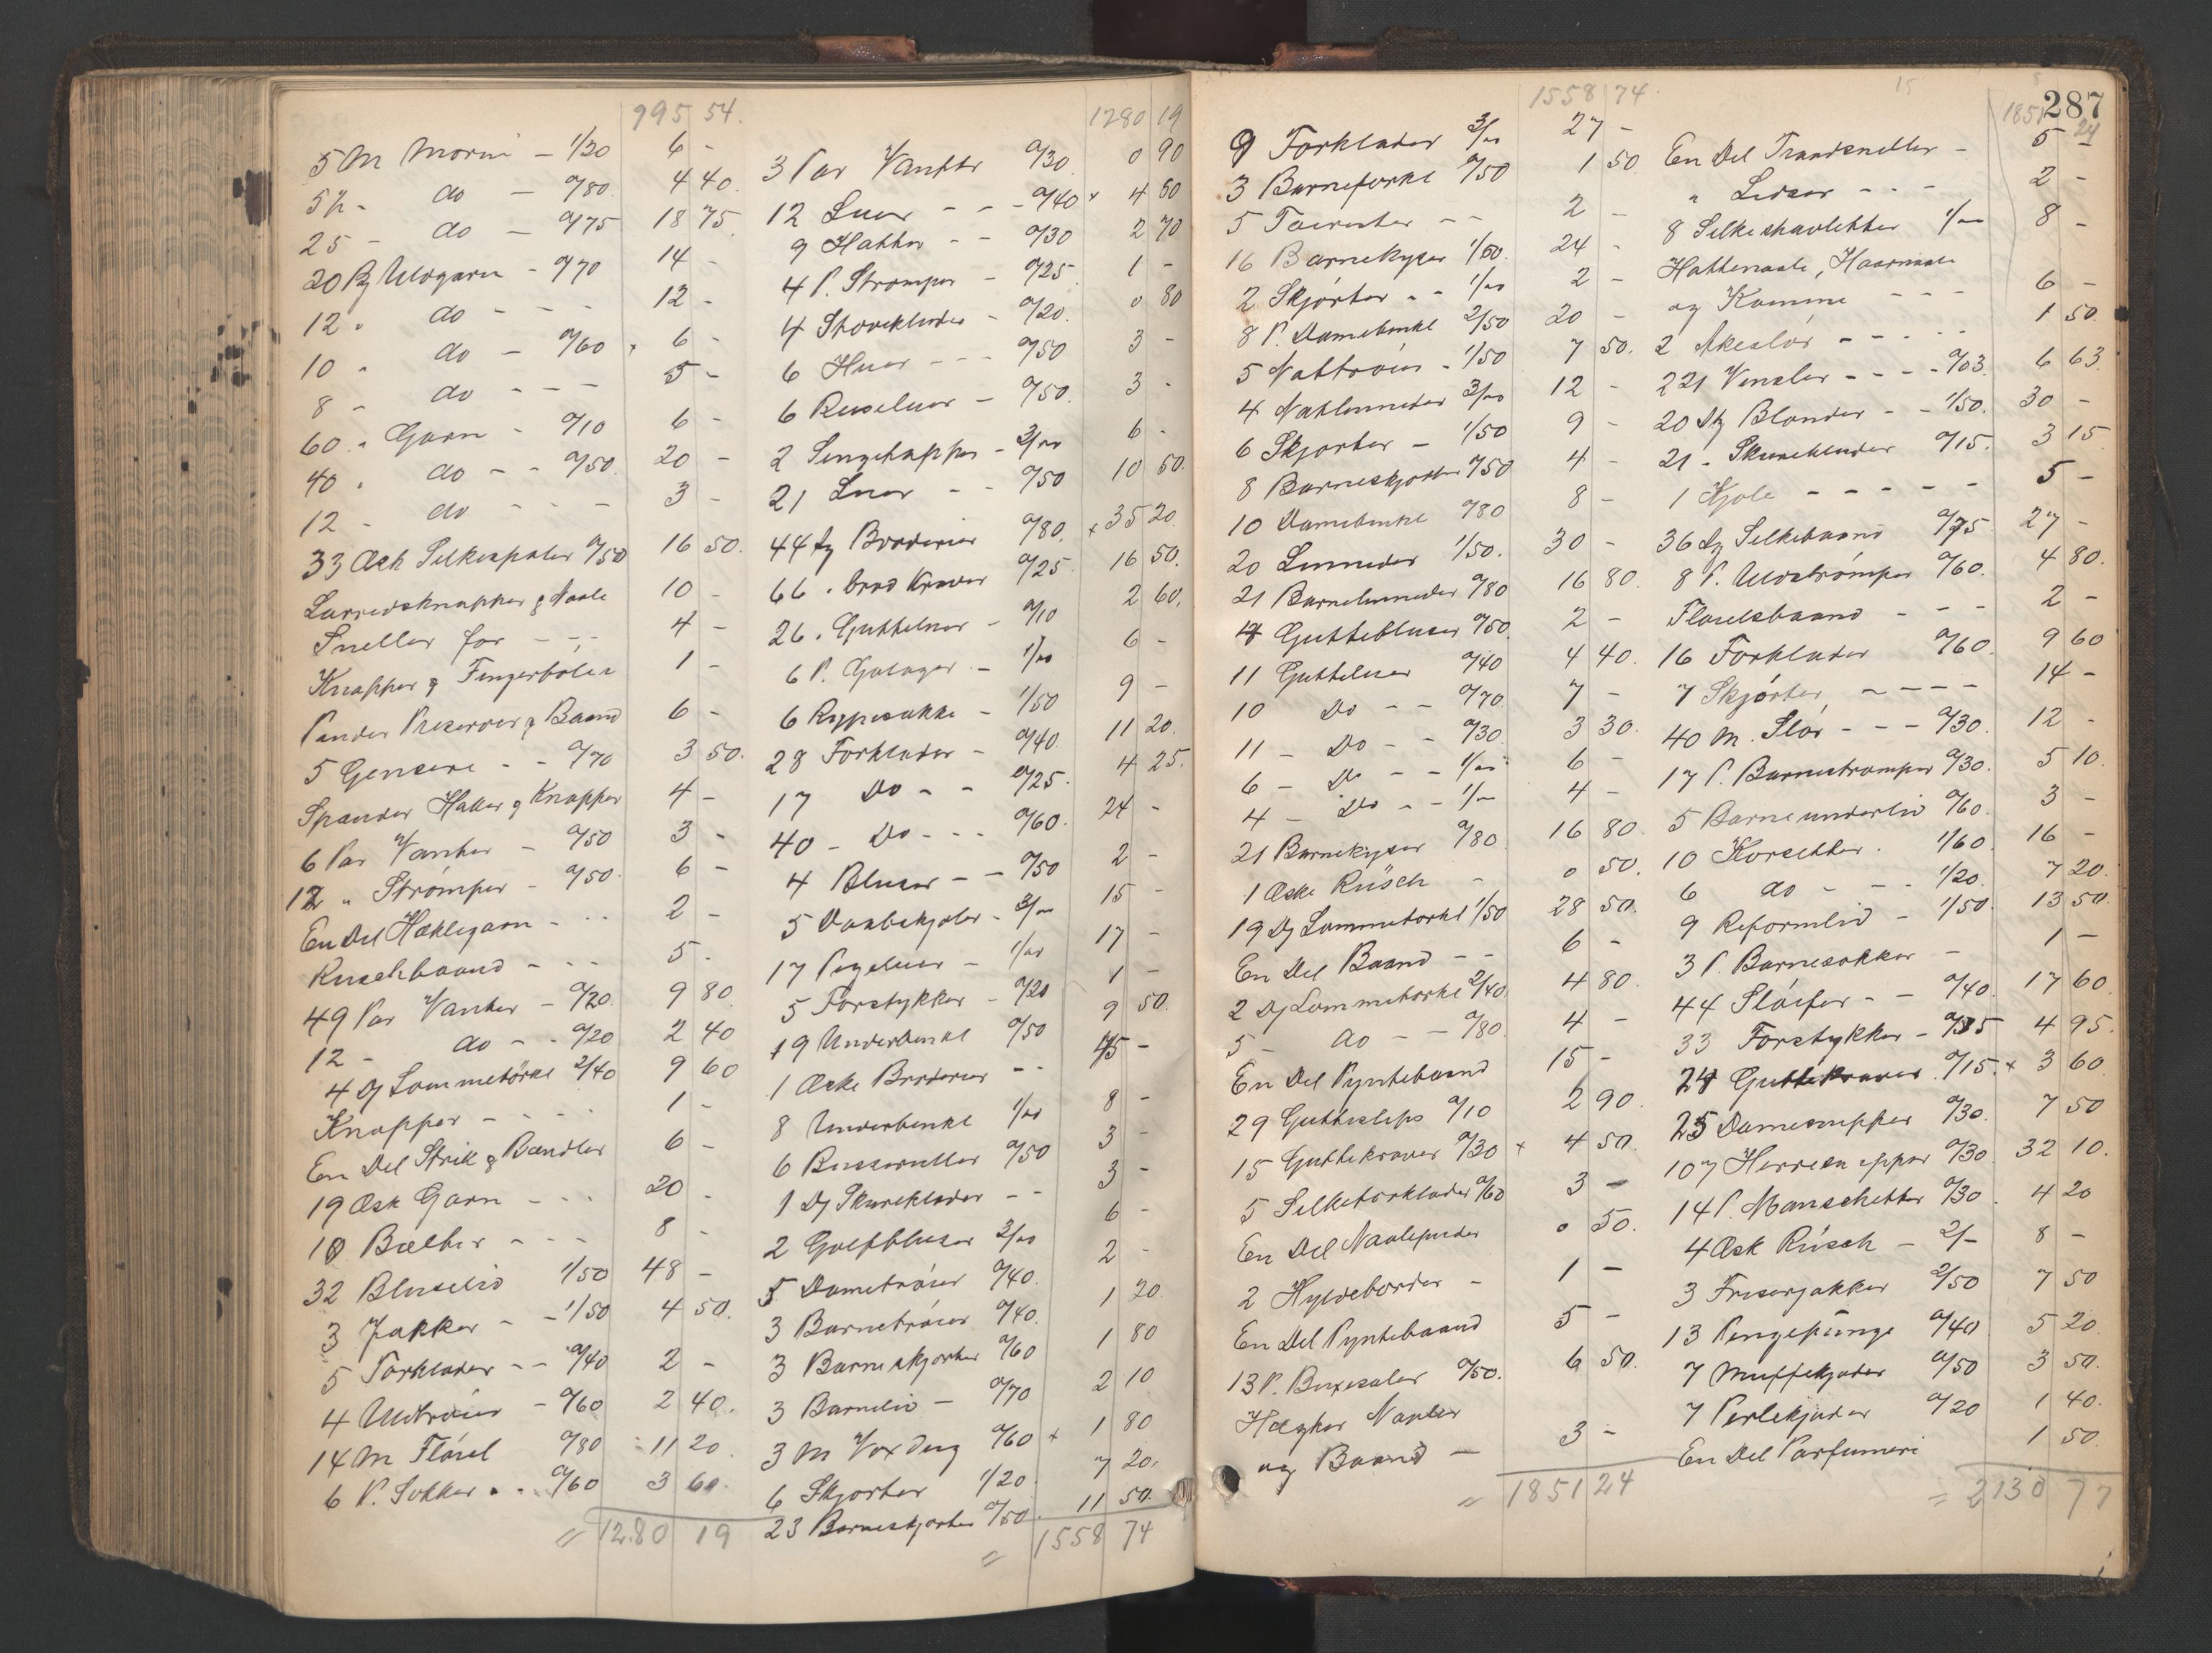 995 54.
5 M Morin - 1/20 6 -
5½ - do - 0/80 4 40.
25 - do - 0/75 18 75.
20 Bg Uldgarn - 0/70 14 -
12 " do - - - 12 -
10 " do - 0/60 6 -
8 - do - - - 5 -
60 " Garn - 0/10 6 -
40 " do - - 0/50 20 -
12 - do - - - 3 -
33 Æsk Silkespoler 0/50 16 50.
Lærredsknapper & Naale 10 -
Sneller for - - - 4 -
Knapper & Fingerbøler 1 -
Pander Preserver & Baand 6 -
5 Gensere - - 0/70 3 50.
Spænder Hatter & Knapper 4 -
6 Par Vanter - 0/50 3 -
12 " Strømper - 0/50 6 -
En Del Hæklegarn - - 2 -
Ruschbaand - - - 5 -
49 Par Vanter - 0/20 9 80
12 - do - - 0/20 2 40
4 Dz Lommetørkl 2/40 9 60
Knapper - - - - 1 -
En Del Strik & Bændler 6 -
19 Æsk Garn - - - 20 -
10 Bælter - - - 8 -
32 Bluseliv 1/50 48 -
3 Jakker - - 1/50 4 50.
5 Forklæder - - 0/40 2 -
4 Uldtrøier - 0/60 2 40.
14 M Fløiel 0/80 11 20.
6 P. Sokker - - 0/60 3 60.
= 1280 19
1280 19
3 Par Vanter 0/30 0 90
12 Luer - - - 0/40 x 4 80
9 Hatter - - 0/30 2 70
4 P. Strømper - 0/25 1 -
4 Støvekluder - 0/20 0 80
6 Huer - - - 0/50 3 -
6 Ruseluer - 0/50. 3 -
2 Sengetæpper - 3/00 6 -
21 Luer - - 0/50 10 50.
44 Dz Broderier 0/80. x 35 20
66 " brod Kraver 0/25 16 50.
26 " Gutteluer - 0/10 2 60.
6 P. Galoger - 1/00 6 -
6 Rygsække - 1/50 9 -
28 Forklæder - 0/40 11 20.
17 Do - - 0/25. 4 25.
40 - Do - - - 0/60 24 -
4 Bluser - - 0/50 2 -
5 Daabskjoler - 3/00 15 -
17 Pigeluer - 1/00 17 -
5 Forstykker - 0/20 1 -
19 Underbenkl 0/50 9 50.
1 Æske Broderier - - 15 -
8 Underbenkl 1/00 8 -
6 Busseruller 0/50 3 -
1 Dz Skureklæder - - 3 -
2 Golfbluser 3/00 6 -
5 Dametrøier 0/40. 2 -
3 Barnetrøier 0/40. 1 20.
3 Barneskjorter 0/60 1 80
3 Barneliv - 0/70 2 10
3 M Voxdug 0/60 x 1 80
6 Skjorter 1/20 7 20.
23 Barneskjorter 0/50. 11 50.
= 1558 74
1558 74.
9 Forklæder 3/00 27 -
3 Barneforkl 0/50 1 50
5 Toiester - - 2 -
16 Barnekyser 1/50. 24 -
2 Skjørter - - 1/00 2 -
8 P. Damebenkl 2/50 20 -
5 Nattrøier - 1/50 7 50.
4 Natlinneder 3/00 12 -
6 Skjorter - 1/50 9 -
8 Barneskjorter 0/50 4 -
10 Damebenkl 0/80 8 -
20 Linneder 1/50. 30 -
21 Barnelinneder 0/80 16 80.
4 Guttebluser 0/50 2 -
11 Gutteluer 0/40 4 40.
10 Do - - 0/70 7 -
11 - Do - - 0/30 3 30.
6 - Do - - 1/00 6 -
4 - Do - - 1/- 4 -
21 Barnekyser 0/80 16 80.
1 Æske Rüsch - 0 50.
19 Dz Lommetørkl 1/50 28 50.
En Del Baand - - 6 -
2 Dz Lommetørkl 2/40 4 80.
5 - do - - 0/80 4 -
En Del Pyntebaand 15 -
29 Gutteslips 0/10 2 90.
15 Guttekraver 0/30 x 4 50.
5 Silketørklæder 0/60 3 -
En Del Naalepuder 0 50.
2 Hyldeborder - 1 -
En Del Pyntebaand 5 -
13 P. Buxeseler 0/50. 6 50.
Hægter Naaler
og Baand - 3 -
= 1851 24
287
1851 24
En Del Traadsneller - 5 -
" Lidser - - - 2 -
8 Silkeshavletter 1/00 8 -
Hattenaale, Haarnaale
og Kamme - - - 6 -
2 Akeslør - - - - 1 50.
221 Vinsler - - - - 0/03 6 63.
20 Dz Blonder - - 1/50. 30 -
21 - Skurekluder 0/15. 3 15.
1 Kjole - - - - - 5 -
36 Dz Silkebaand 0/75 27 -
8 P. Uldstrømper 0/60. 4 80.
Fløielsbaand - - - 2 -
16 Forklæder 0/60. 9 60
7 Skjørter - - - - 14 -
40 M. Slør - - - 0/30. 12 -
17 P. Barnestrømper 0/30. 5 10.
5 Barneunderliv 0/60. 3 -
10 Korsetter. 1/60. 16 -
6 do - - - 1/20. 7 20.
9 Reformliv - 1/50. 13 50.
3 P. Barnesokker - 1 -
44 Sløifer - - 0/40. 17 60.
33 Forstykker - 0/15 4 95.
24 Guttekraver 0/15. x 3 60
25 Damesnipper 0/30. 7 50
107 Herresnipper 0/30 32 10.
14 P. Manschetter 0/30 4 20
4 Æsk Rüsch - 2/- 8 -
3 Friserjakker 2/50 7 50
13 Pengepunge 0/40 5 20.
7 Muffekjæder 0/50 3 50.
7 Perlekjæder 0/20 1 40.
En Del Parfumeri 1 50.
= 2130 77